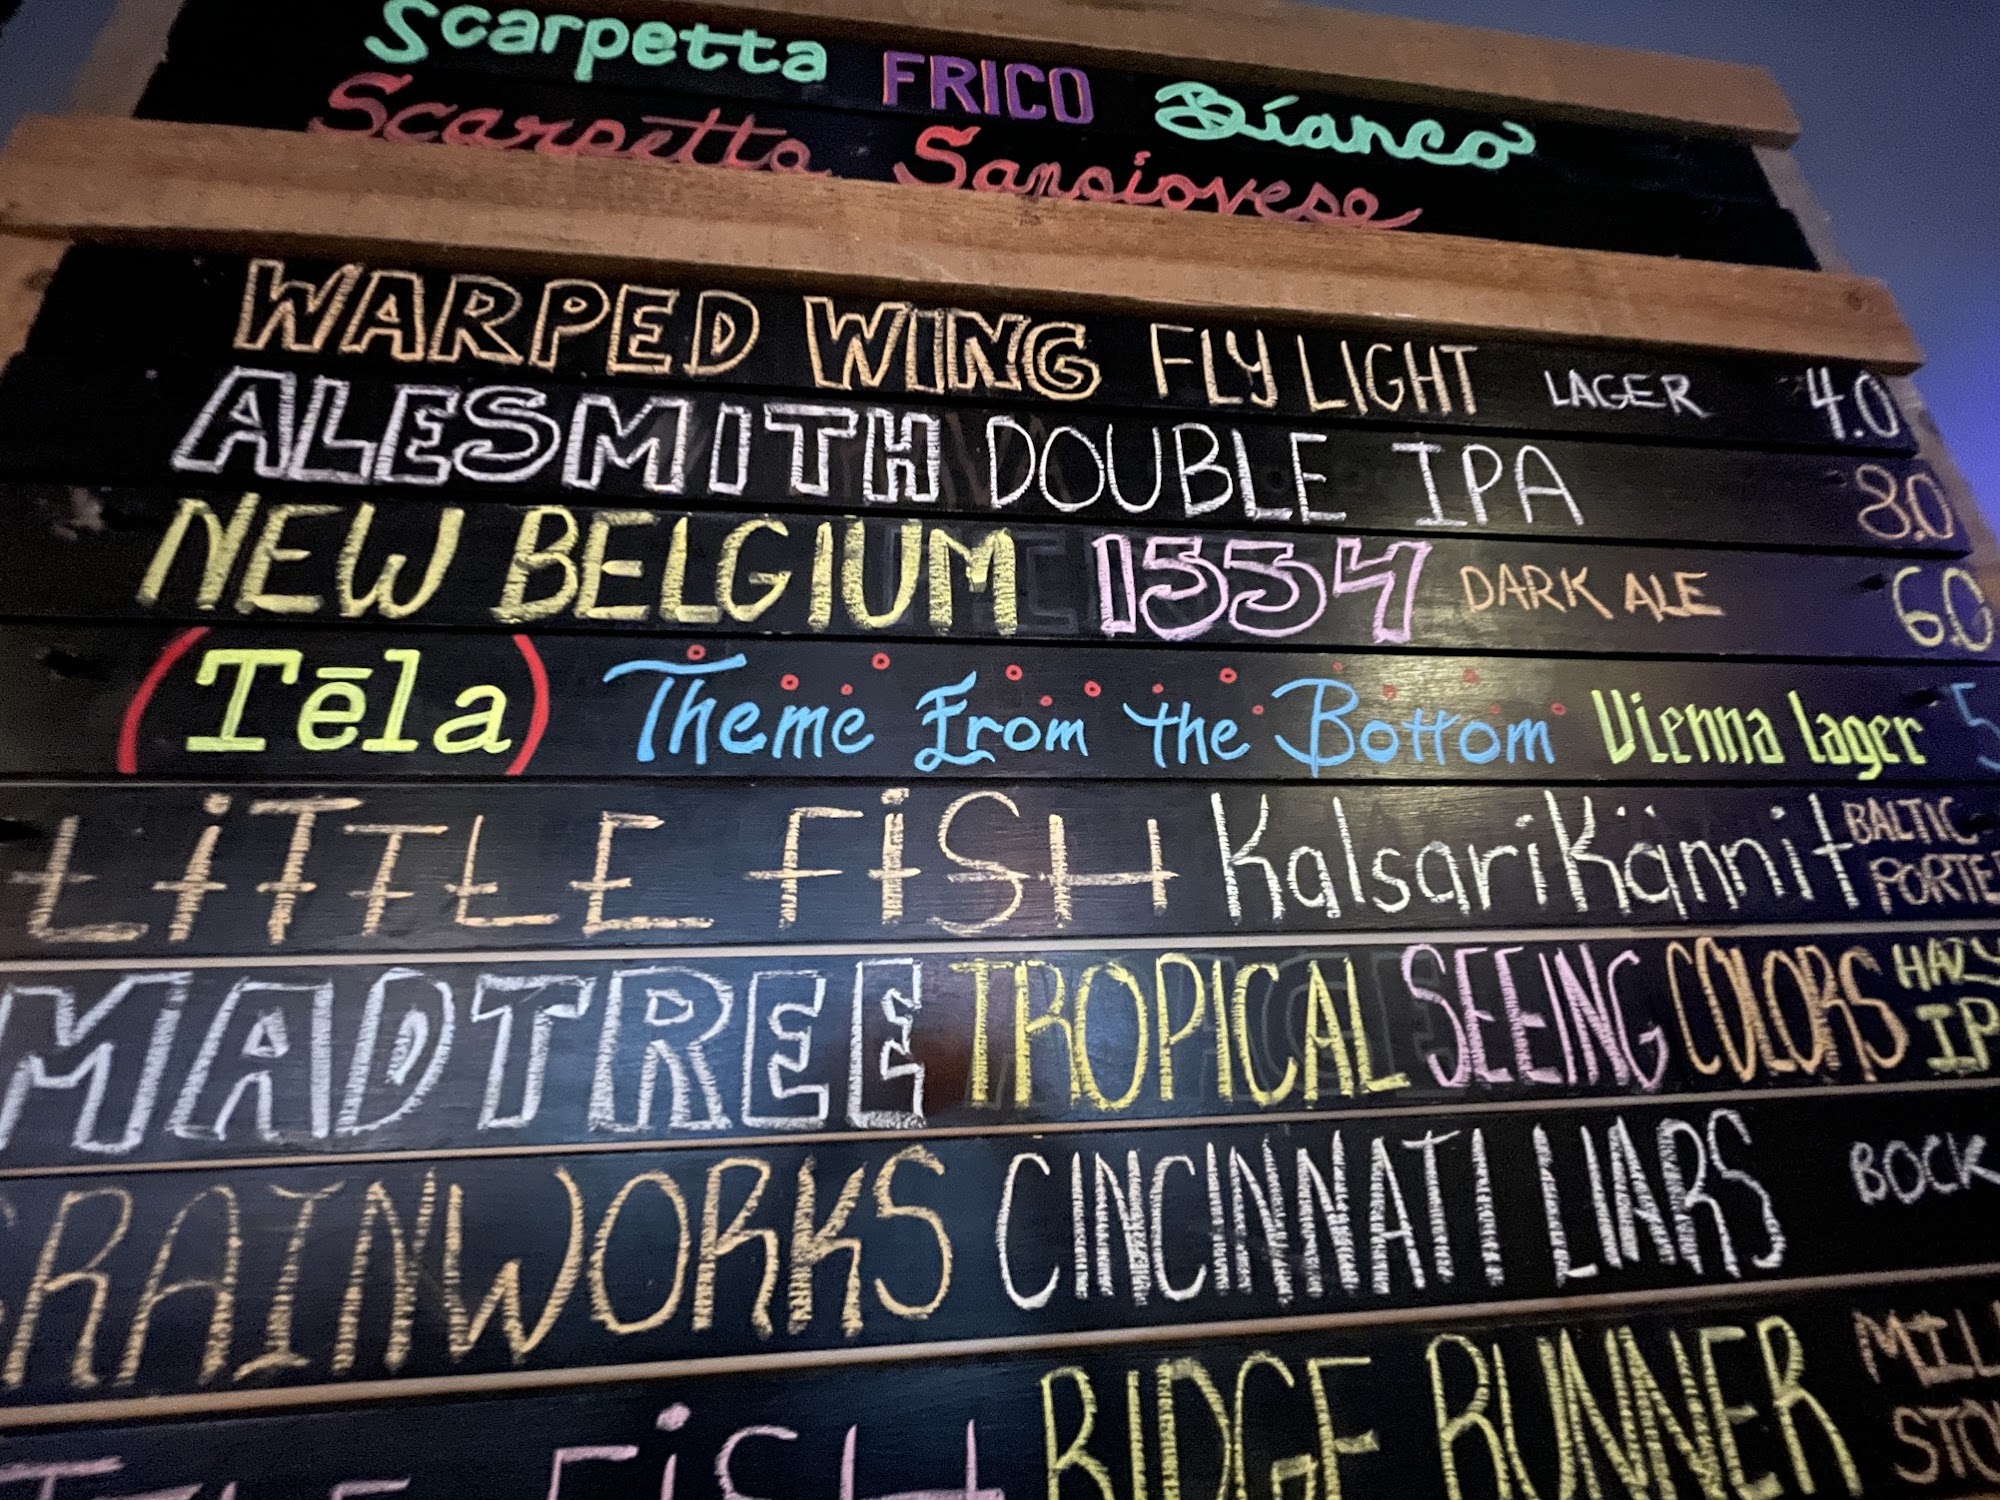 Scarpetta FRICO Bianco
Scarpetta Sangiovese
WARPED WING FLY LIGHT LAGER 4.0
ALESMITH DOUBLE IPA 8.0
NEW BELGIUM 1554 DARK ALE 6.0
(Tēla) Theme From the Bottom Vienna lager 5
LiTTLE FiSH KalsariKännit BALTIC PORTE
MADTREE TROPICAL SEEING COLORS HAZY IP
RAINWORKS CINCINNATI LIARS BOCK
TLE FiSH RIDGE RUNNER MIL STO